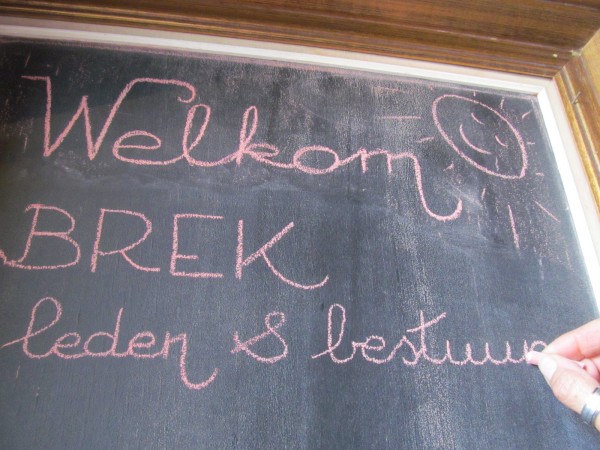 Welkom
BREK
leden & bestuur